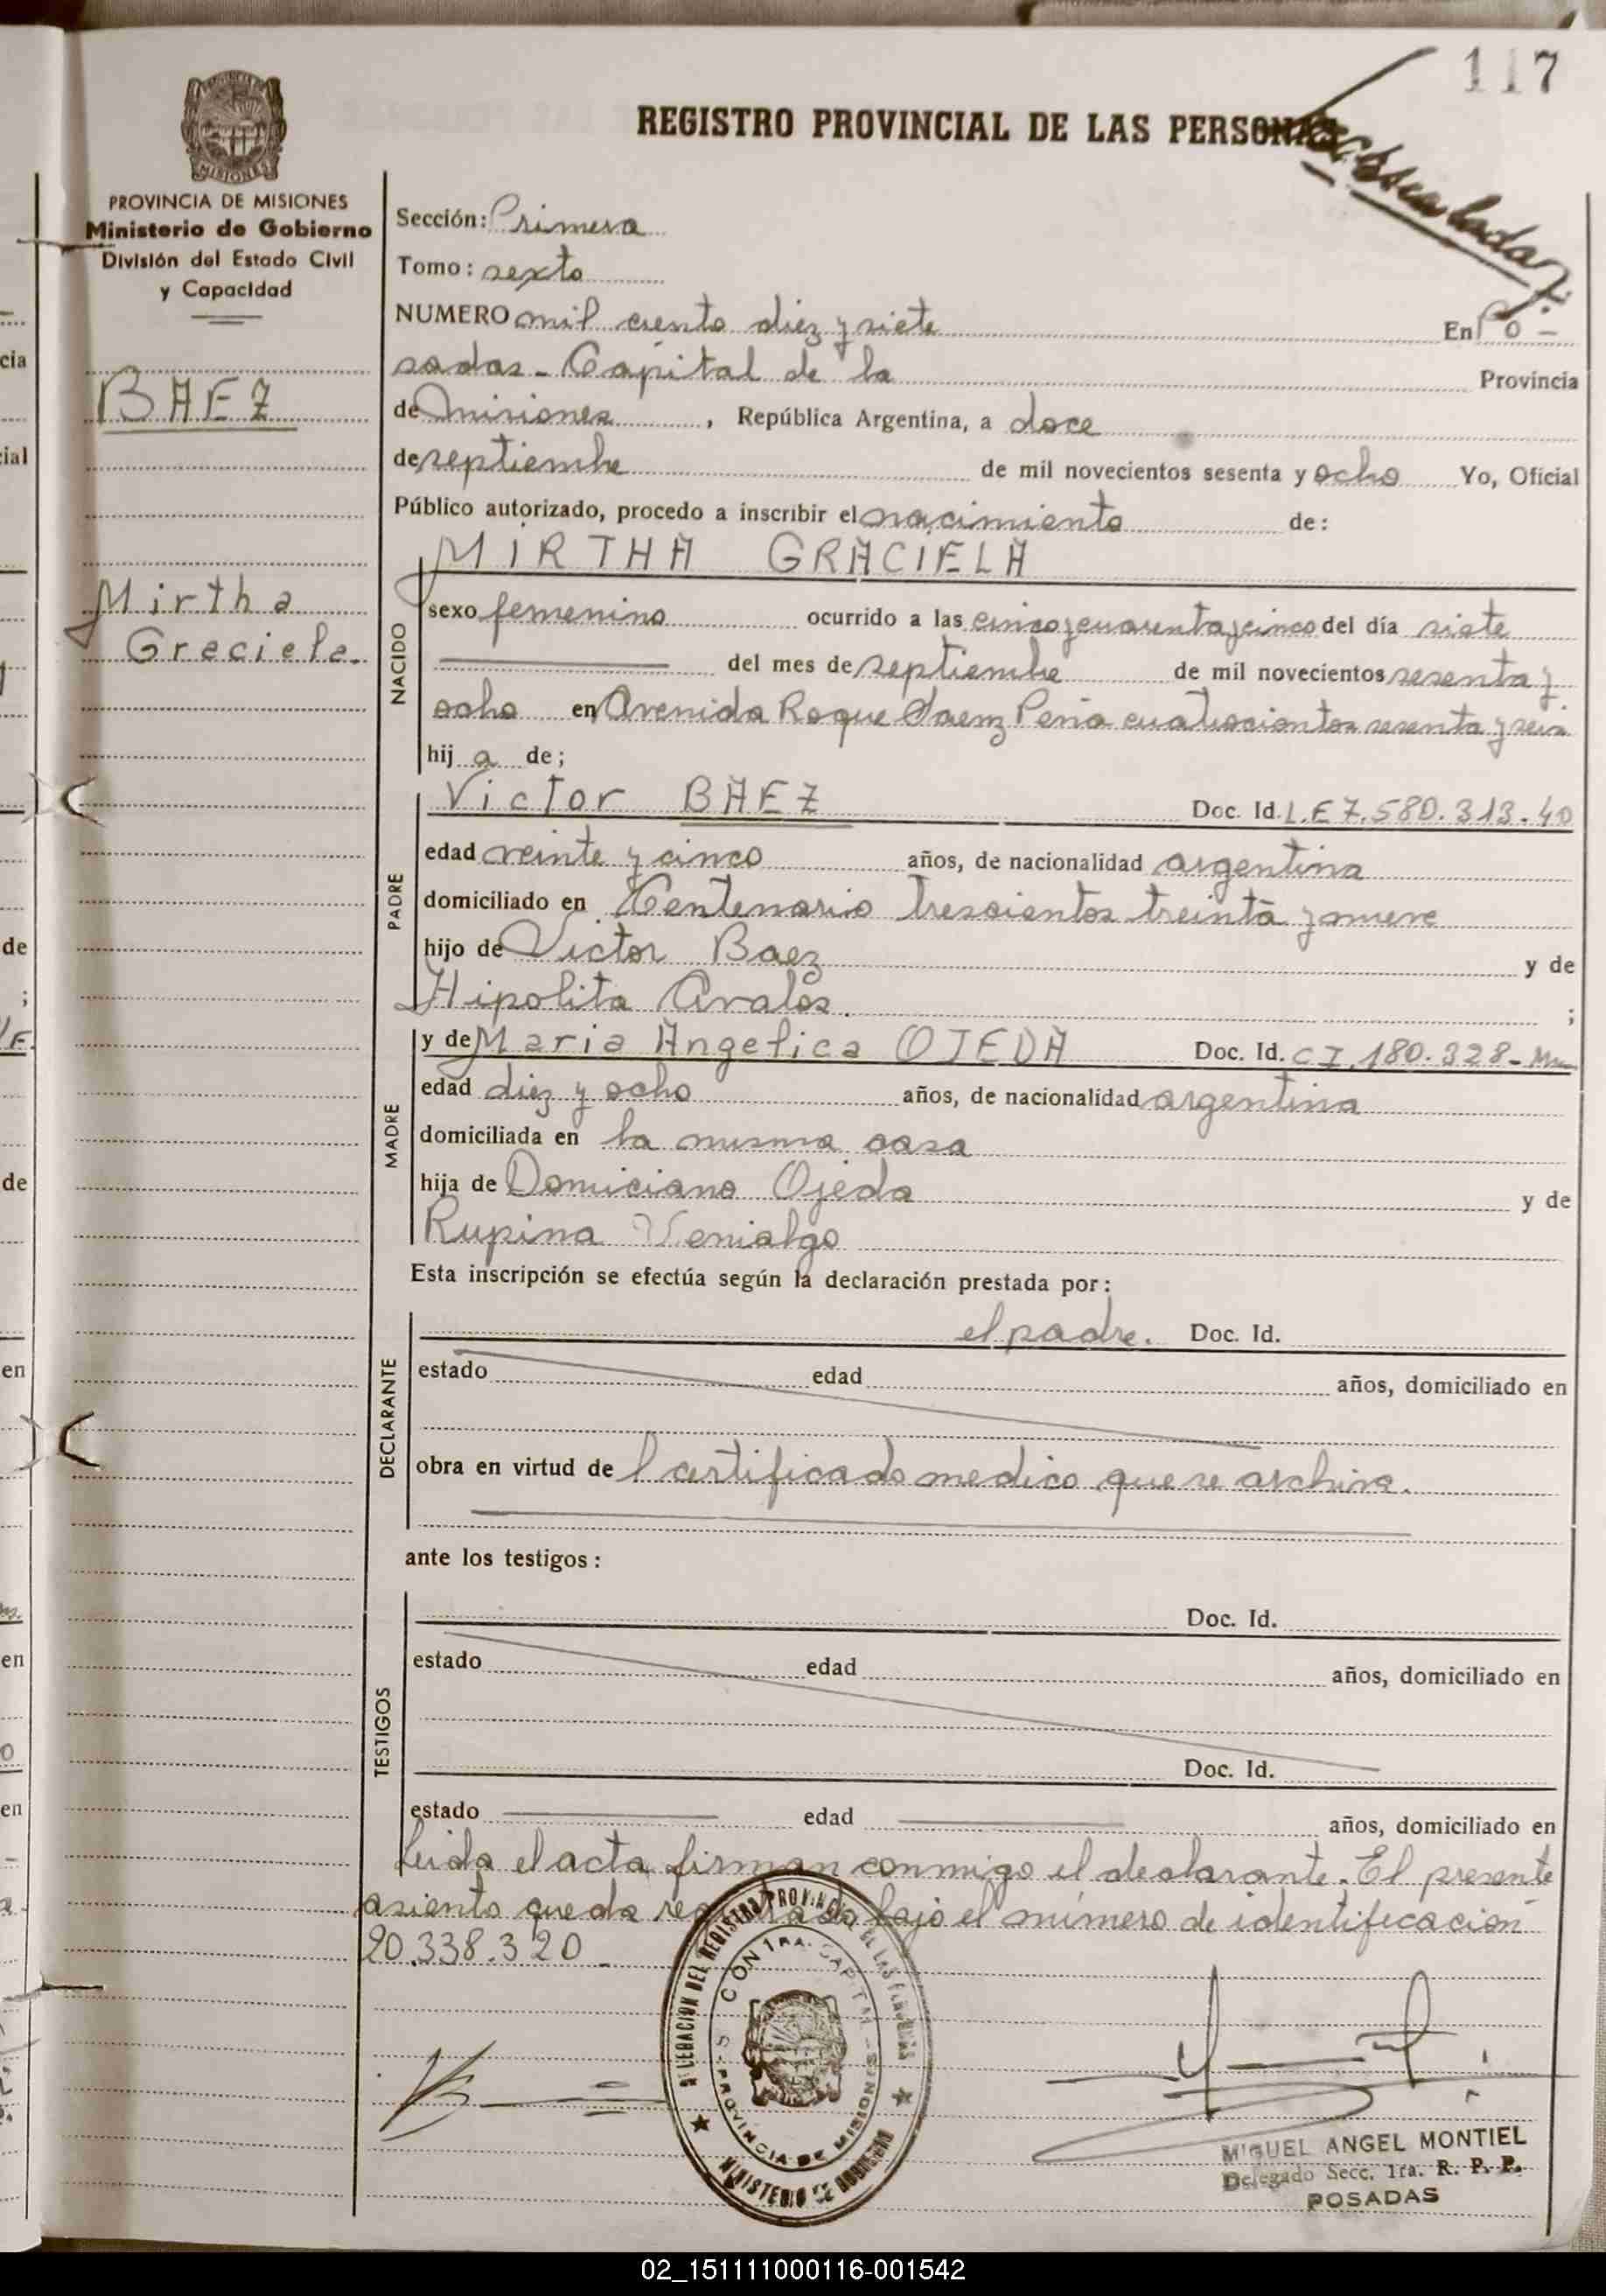 117
REGISTRO PROVINCIAL DE LAS PERSONAS
PROVINCIA DE MISIONES
Ministerio de Gobierno
División del Estado Civil
y Capacidad
BAEZ
Mirtha
Graciela.
Sección: Primera
Tomo: sexto
NUMERO mil ciento diez y siete En Po-
sadas - Capital de la Provincia
de Misiones, República Argentina, a doce
de septiembre de mil novecientos sesenta y ocho Yo, Oficial
Público autorizado, procedo a inscribir el nacimiento de:
MIRTHA GRACIELA
NACIDO
sexo femenino ocurrido a las cinco y cuarenta y cinco del día siete
del mes de septiembre de mil novecientos sesenta y
ocho en Avenida Roque Saenz Peña cuatrocientos sesenta y seis
hij a de;
PADRE
Victor BAEZ Doc. Id. L.E 7.580.313.40
edad veinte y cinco años, de nacionalidad argentina
domiciliado en Centenario trescientos treinta y nueve
hijo de Victor Baez y de
Hipolita Avalos. ;
MADRE
y de Maria Angelica OJEDA Doc. Id. C I. 180.328-
edad diez y ocho años, de nacionalidad argentina
domiciliada en la misma casa
hija de Domiciano Ojeda y de
Rupina Venialgo
Esta inscripción se efectúa según la declaración prestada por:
DECLARANTE
el padre. Doc. Id.
estado edad años, domiciliado en
obra en virtud de l certificado medico que se archiva.
ante los testigos:
TESTIGOS
Doc. Id.
estado edad años, domiciliado en
Doc. Id.
estado edad años, domiciliado en
Leida el acta firman conmigo el declarante. El presente
asiento queda registrado bajo el número de identificación
20.338.320
DEL REGISTRO PROVINCIAL DE LAS PERSONAS
MINISTERIO DE GOBIERNO
CAPITAL
PROVINCIA DE MISIONES
MIGUEL ANGEL MONTIEL
Delegado Secc. 1ra. R. P. P.
POSADAS
02_151111000116-001542